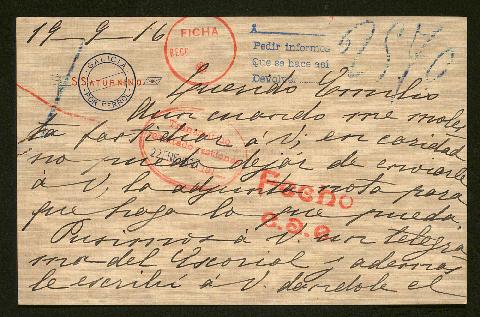 19-9-16
FICHA
A
Pedir informes
Que se hace así
Devolver
GALICIA
S. SATURNINO
POR FERROL
Querido Emilio
Aun cuando me moles-
ta partidas á V, en caridad
no puedo dejar de enviarle
á V, la adjunta nota para
que haga lo que pueda.
Fecho
a.e.e
Pusimos á V un telegra
ma del Escorial y ademas
le escribí á V. dandole el